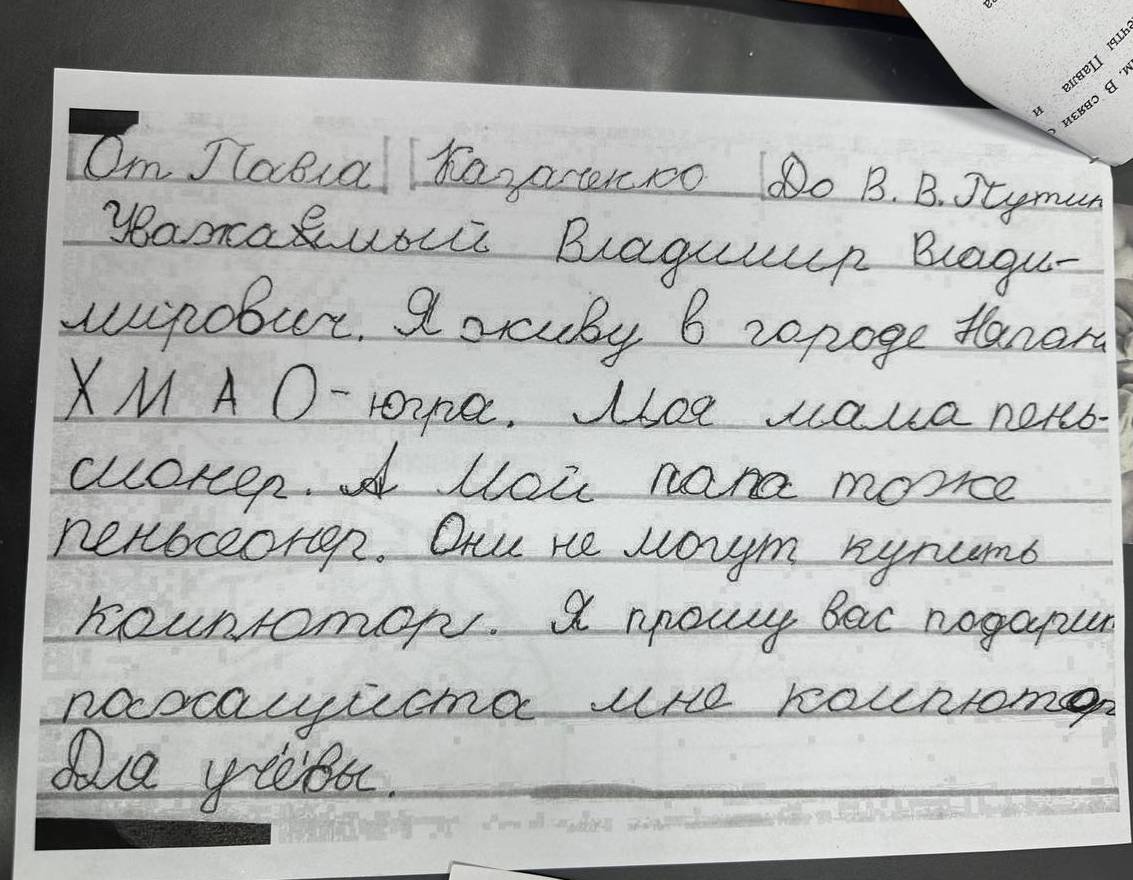 От Павла Казаченко До В. В. Путин
Уважаемый Владимир Влади-
мирович. Я живу в городе Няган
ХМАО-югра. Моя мама пень-
сионер. А Мой папа тоже
пеньсеонер. Они не могут купить
компютор. Я прошу вас подарит
пажалуйста мне компютор
Для учёбы.
ечты Павла
м. В связи
и